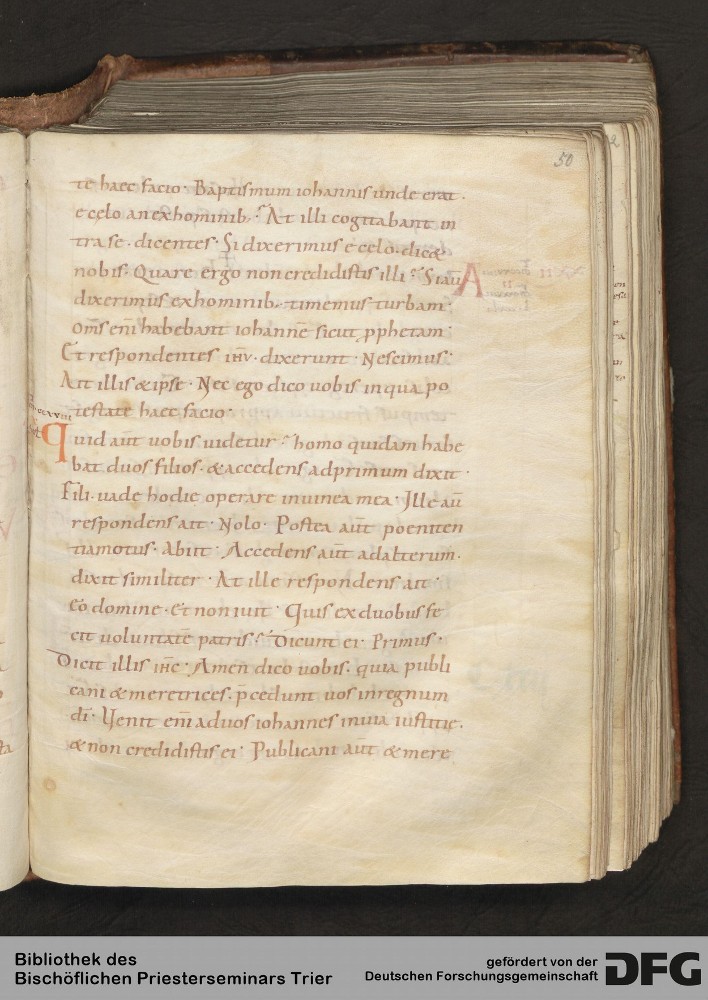 50
te haec facio· Baptismum iohannis unde erat·
e cęlo an ex hominib; At illi cogitabant in
tra se· dicentes· Si dixerimus e cęlo· dic&
nobis· Quare ergo non credidistis illi? Si aū
dixerimus ex hominib· timemus turbam·
Om̄s eni habebant iohannē sicut pphetam·
Et respondentes ihu· dixerunt· Nescimus·
Ait illis & ipse· Nec ego dico uobis in qua po
testate haec facio·
Quid aūt uobis uidetur? homo quidam habe
bat duos filios· & accedens ad primum dixit·
Fili· uade hodie operare in uinea mea· Ille aū
respondens ait· Nolo· Postea aūt poeniten
tia motus· Abiit· Accedens aūt ad alterum·
dixit similiter· At ille respondens ait·
Eo domine· Et non iuit· Quis ex duobus fe
cit uoluntatē patris? Dicunt ei· Primus·
Dicit illis ihc· Amen dico uobis· quia publi
cani & meretrices· p̄cedunt uos in regnum
dī· Uenit eni ad uos iohannes in uia iustitię·
& non credidistis ei· Publicani aūt & mere
Bibliothek des
Bischöflichen Priesterseminars Trier
gefördert von der
Deutschen Forschungsgemeinschaft
DFG